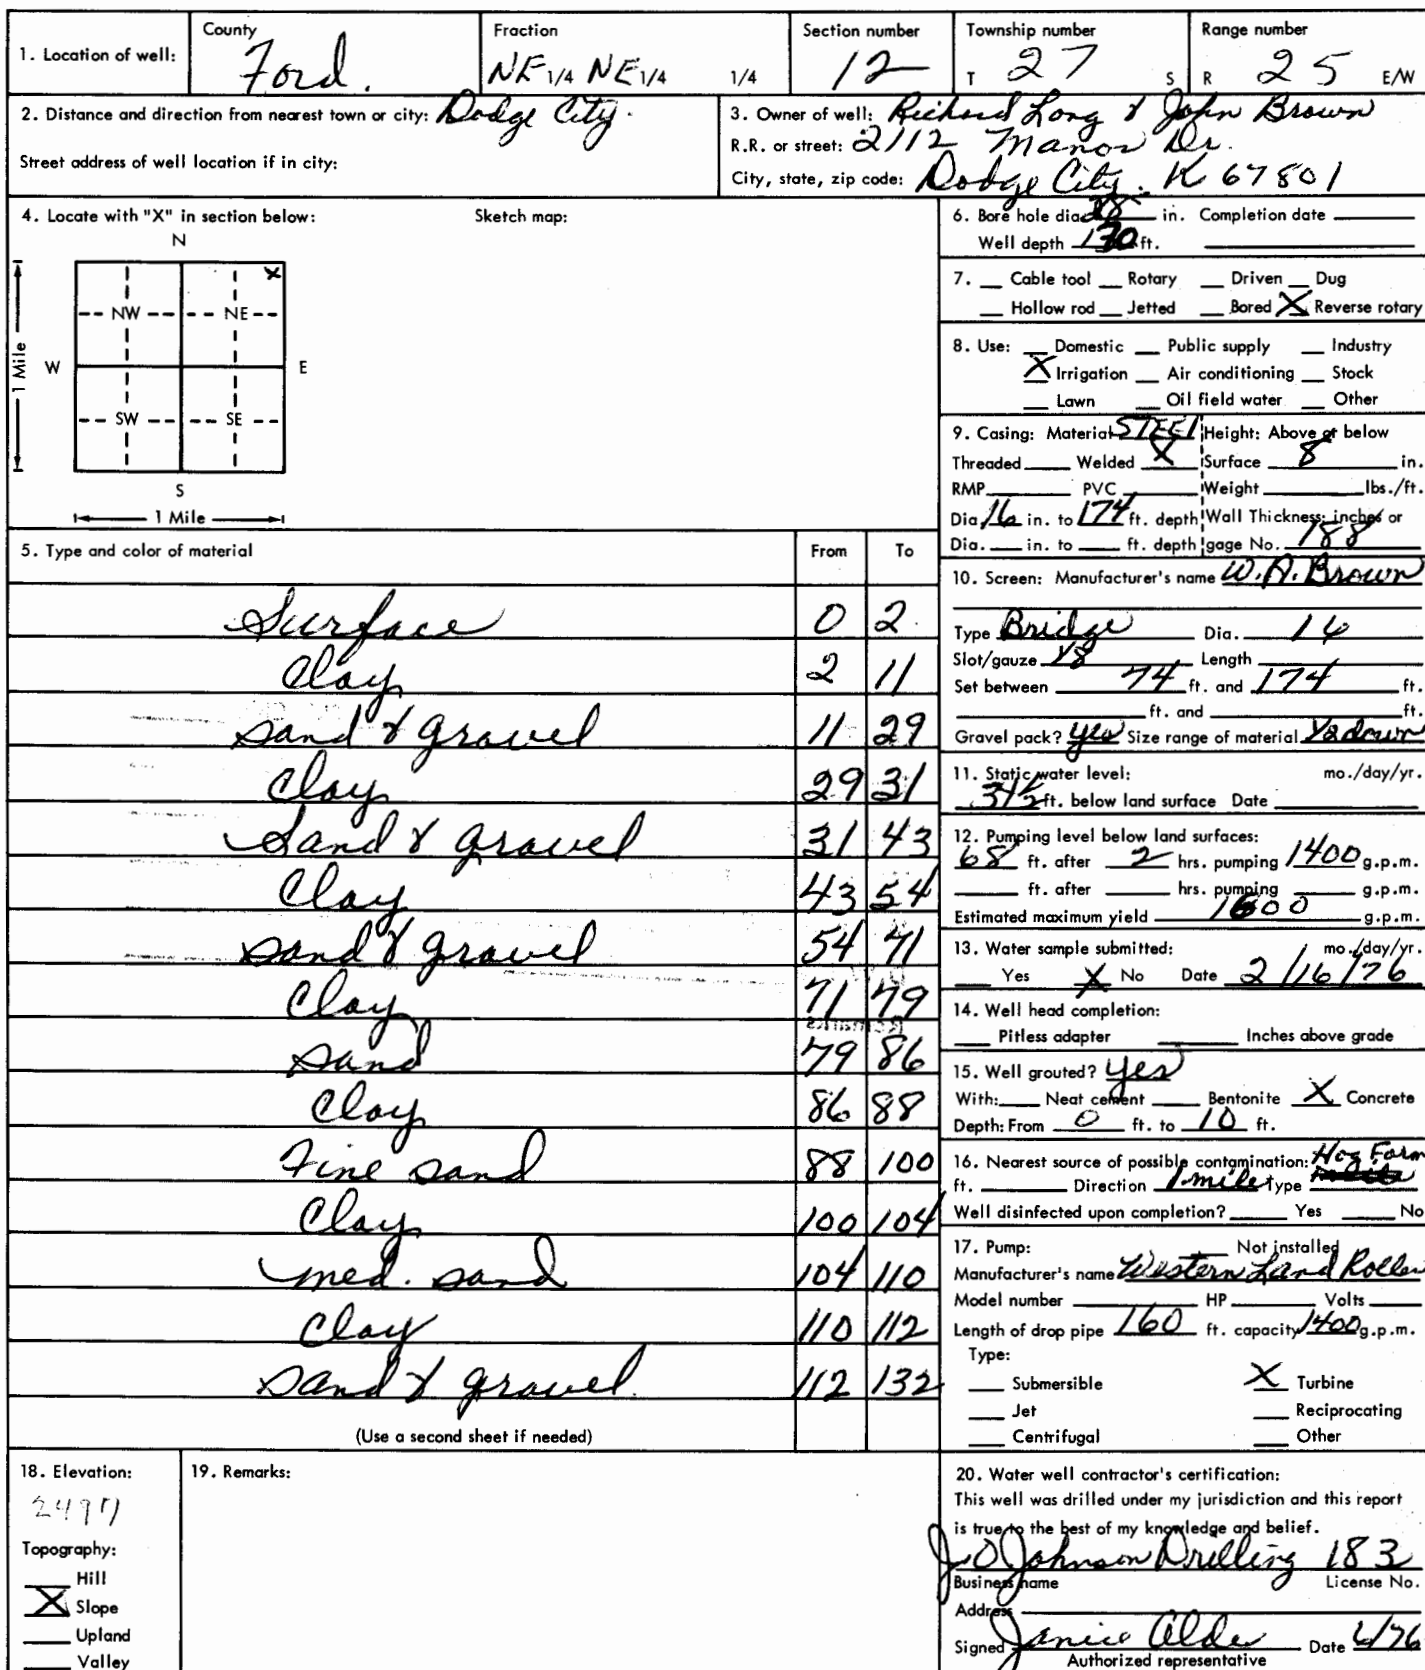 1. Location of well: County Ford. Fraction NE 1/4 NE 1/4 1/4 Section number 12 Township number T 27 S Range number R 25 E/W
2. Distance and direction from nearest town or city: Dodge City.
Street address of well location if in city:
3. Owner of well: Richard Long & John Brown
R.R. or street: 2112 Manor Dr.
City, state, zip code: Dodge City. K 67801
4. Locate with "X" in section below: Sketch map:
N
X
NW NE
W E
1 Mile
SW SE
S
1 Mile
5. Type and color of material From To
Surface 0 2
Clay 2 11
Sand & gravel 11 29
Clay 29 31
Sand & gravel 31 43
Clay 43 54
Sand & gravel 54 71
Clay 71 79
Sand 79 86
Clay 86 88
Fine sand 88 100
Clay 100 104
med. sand 104 110
Clay 110 112
Sand & gravel 112 132
(Use a second sheet if needed)
6. Bore hole dia. in. Completion date
Well depth ft.
7. Cable tool Rotary Driven Dug
Hollow rod Jetted Bored X Reverse rotary
8. Use: Domestic Public supply Industry
X Irrigation Air conditioning Stock
Lawn Oil field water Other
9. Casing: Material STEEl Height: Above or below
Threaded Welded X Surface 8 in.
RMP PVC Weight lbs./ft.
Dia 16 in. to 174 ft. depth Wall Thickness: inches or
Dia. in. to ft. depth gage No. 188
10. Screen: Manufacturer's name W.A. Brown
Type Bridge Dia. 16
Slot/gauze 1/8 Length
Set between 74 ft. and 174 ft.
ft. and ft.
Gravel pack? yes Size range of material 1/2 down
11. Static water level: mo./day/yr.
ft. below land surface Date
12. Pumping level below land surfaces:
68 ft. after 2 hrs. pumping 1400 g.p.m.
ft. after hrs. pumping g.p.m.
Estimated maximum yield 1600 g.p.m.
13. Water sample submitted: mo./day/yr.
Yes X No Date 2/16/76
14. Well head completion:
Pitless adapter Inches above grade
15. Well grouted? yes
With: Neat cement Bentonite X Concrete
Depth: From 0 ft. to 10 ft.
16. Nearest source of possible contamination: Hog Farm
ft. Direction 1 mile Type
Well disinfected upon completion? Yes No
17. Pump: Not installed
Manufacturer's name Western Land Roller
Model number HP Volts
Length of drop pipe 160 ft. capacity 1400 g.p.m.
Type:
Submersible X Turbine
Jet Reciprocating
Centrifugal Other
18. Elevation:
2497
Topography:
Hill
X Slope
Upland
Valley
19. Remarks:
20. Water well contractor's certification:
This well was drilled under my jurisdiction and this report
is true to the best of my knowledge and belief.
J O Johnson Drilling 183
Business name License No.
Address
Signed Janice Date 6/76
Authorized representative